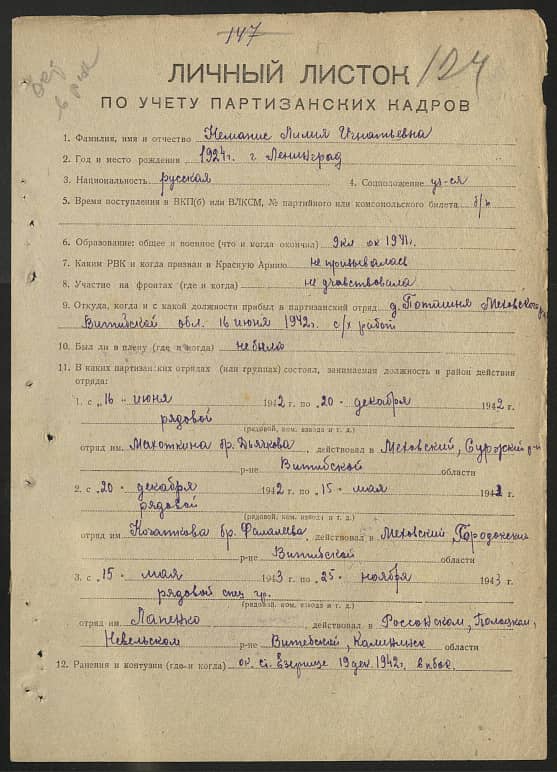 147
124
ЛИЧНЫЙ ЛИСТОК
ПО УЧЕТУ ПАРТИЗАНСКИХ КАДРОВ
1. Фамилия, имя и отчество Немание Лилия Игнатьевна
2. Год и место рождения 1924г. г Ленинград
3. Национальность русская 4. Соцположение уч-ся
5. Время поступления в ВКП(б) или ВЛКСМ, № партийного или комсомольского билета б/п
6. Образование: общее и военное (что и когда окончил) 9кл ок 1941г.
7. Каким РВК и когда призван в Красную Армию не призывалась
8. Участие на фронтах (где и когда) не учавствовала
9. Откуда, когда и с какой должности прибыл в партизанский отряд д. Меховского
Витебской обл. 16 июня 1942г. с/х работ
10. Был ли в плену (где и когда) не была
11. В каких партизанских отрядах (или группах) состоял, занимаемая должность и район действия
отряда:
1. с „16" июня 1942 г. по „20" декабря 1942 г.
рядовой
(рядовой, ком. взвода и т. д.)
отряд им. Махоткина бр. Дьячкова, действовал в Меховский, Суражский р-н
р-не Витебской области
2. с „20" декабря 1942 г. по „15" мая 1943 г.
рядовой
(рядовой, ком. взвода и т. д.)
отряд им бр. Фалалеева, действовал в Меховский, Городокский
р-не Витебской области
3. с „15" мая 1943 г. по „25" ноября 1943 г.
рядовой спец гр.
(рядовой, ком. взвода и т. д.)
отряд им. Лапенко, действовал в Россонском, Полоцком,
Невельском р-не Витебской, Калининск области
12. Ранения и контузии (где и когда) ок. ст. Езерище 19 дек. 1942г. в бок.